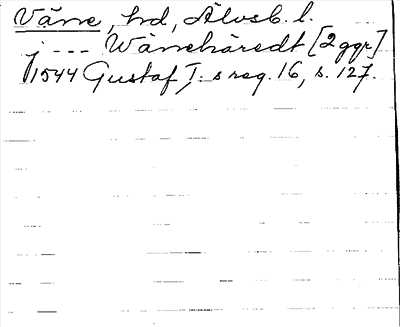 Väne, hd, Älvsb. l.
j --- Wäneháredt [2 ggr]
1544 Gustaf I: s reg. 16, s. 127.